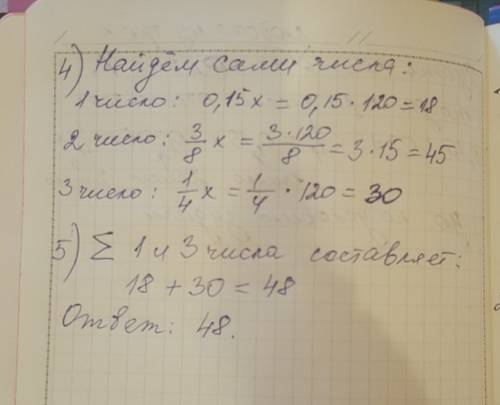 4) Найдём сами числа:
1 число: 0,15x = 0,15 · 120 = 18
2 число: 3/8 x = 3·120/8 = 3·15 = 45
3 число: 1/4 x = 1/4 · 120 = 30
5) Σ 1 и 3 числа составляет:
18 + 30 = 48
Ответ: 48.